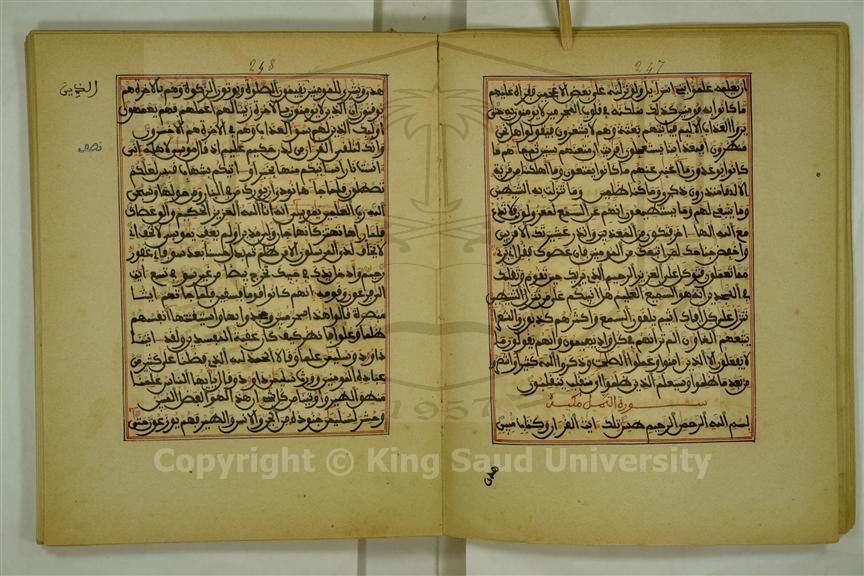 247
ان يعلمه علموا بني اسراءيل ولو نزلنه على بعض الاعجمين فقراه عليهم
ما كانوا به مومنين كذلك سلكنه في قلوب المجرمين لا يومنون به حتى
يروا العذاب الاليم فياتيهم بغتة وهم لا يشعرون فيقولوا هل نحن
منظرون افبعذابنا يستعجلون افريت ان متعنهم سنين ثم جاءهم ما
كانوا يوعدون ما اغنى عنهم ما كانوا يمتعون وما اهلكنا من قرية
الا لها منذرون ذكرى وما كنا ظلمين وما تنزلت به الشيطين
وما ينبغي لهم وما يستطيعون انهم عن السمع لمعزولون فلا تدع
مع الله الها اخر فتكون من المعذبين وانذر عشيرتك الاقربين
واخفض جناحك لمن اتبعك من المومنين فان عصوك فقل اني بري
مما تعملون فتوكل على العزيز الرحيم الذي يريك حين تقوم وتقلبك
في السجدين انه هو السميع العليم هل انبيكم على من تنزل الشيطين
تنزل على كل افاك اثيم يلقون السمع واكثرهم كذبون والشعرا
يتبعهم الغاون الم تر انهم في كل واد يهيمون وانهم يقولون ما
لا يفعلون الا الذين امنوا وعملوا الصلحت وذكروا الله كثيرا وانتصروا
من بعد ما ظلموا وسيعلم الذين ظلموا اي منقلب ينقلبون
سورة النمل مكية
بسم الله الرحمن الرحيم طس تلك ايت القران وكتاب مبين
هدى
248
هدى وبشرى للمومنين الذين يقيمون الصلوة ويوتون الزكوة وهم بالاخرة هم
يوقنون ان الذين لا يومنون بالاخرة زينا لهم اعملهم فهم يعمهون
اوليك الذين لهم سوء العذاب وهم في الاخرة هم الاخسرون
وانك لتلقى القران من لدن حكيم عليم اذ قال موسى لاهله اني
انست نارا ساتيكم منها بخبر او اتيكم بشهاب قبس لعلكم
تصطلون فلما جاها نودي ان بورك من في النار ومن حولها وسبحن
الله رب العلمين يموسى انه انا الله العزيز الحكيم والق عصاك
فلما راها تهتز كانها جان ولى مدبرا ولم يعقب يموسى لا تخف اني
لا يخاف لدي المرسلون الا من ظلم ثم بدل حسنا بعد سوء فاني غفور
رحيم وادخل يدك في جيبك تخرج بيضا من غير سوء في تسع ايت
الى فرعون وقومه انهم كانوا قوما فسقين فلما جاتهم ايتنا
مبصرة قالوا هذا سحر مبين وجحدوا بها واستيقنتها انفسهم
ظلما وعلوا فانظر كيف كان عقبة المفسدين ولقد اتينا
داود وسليمن علما وقالا الحمد لله الذي فضلنا على كثير من
عباده المومنين وورث سليمن داود وقال يايها الناس علمنا
منطق الطير واوتينا من كل شي ان هذا لهو الفضل المبين
وحشر لسليمن جنوده من الجن والانس والطير فهم يوزعون حتى
الذين
نصف
1957
Copyright © King Saud University